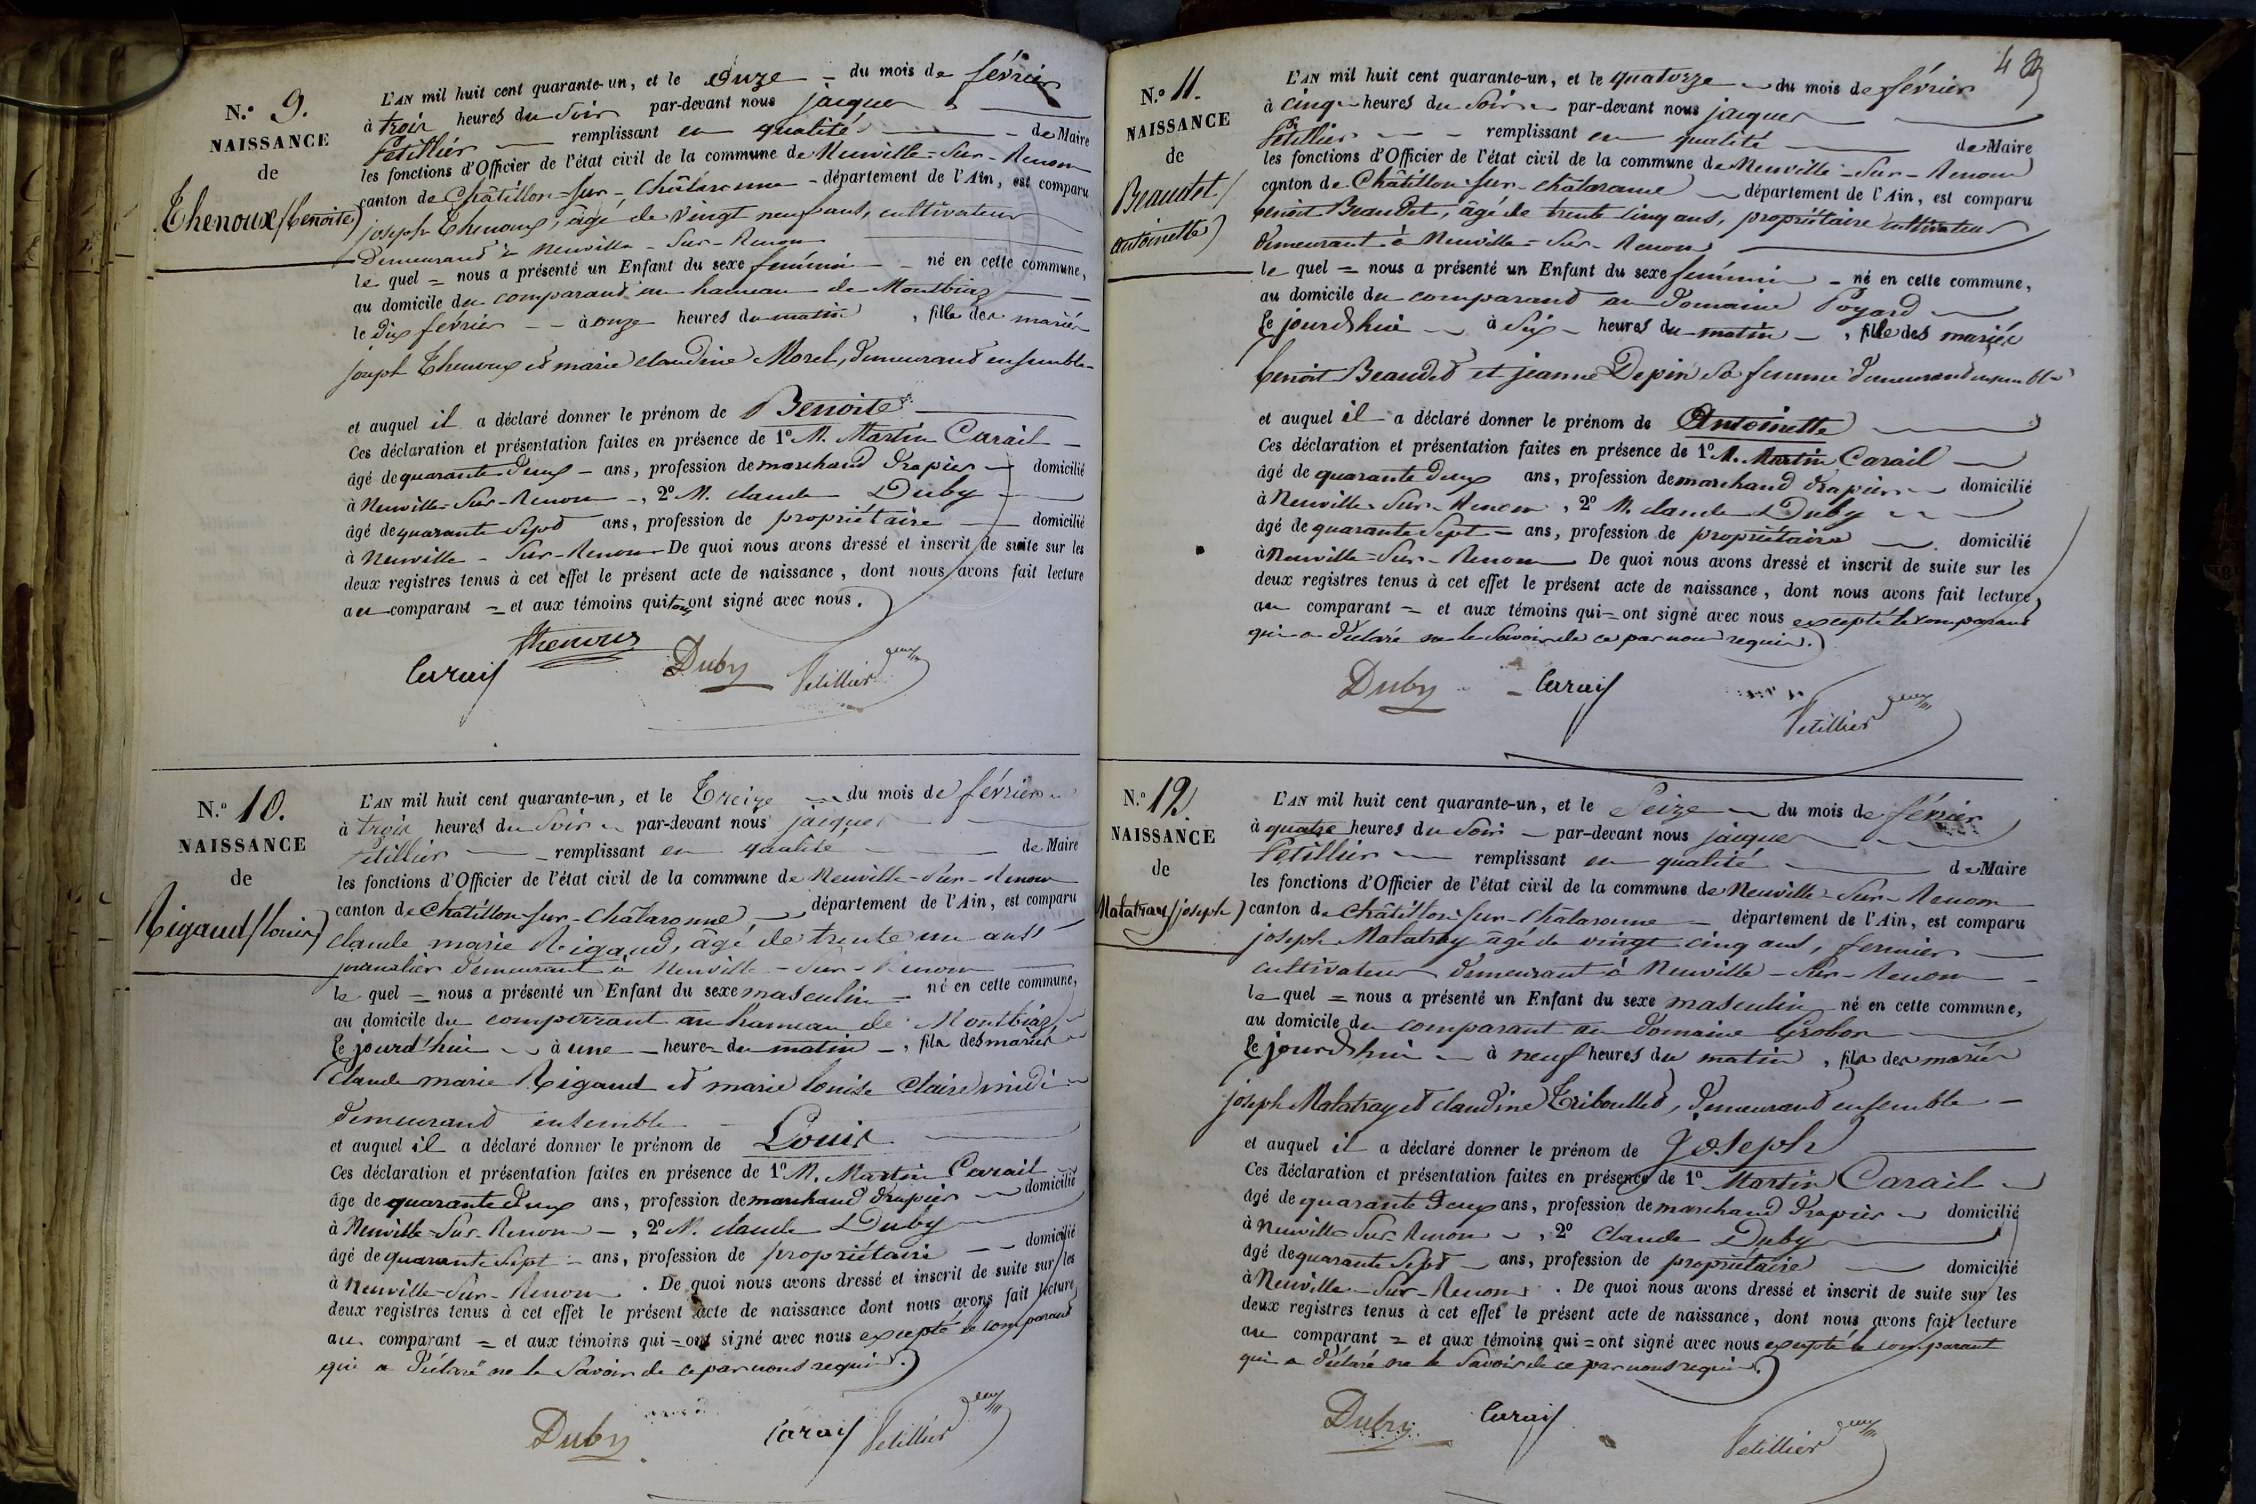 N.° 9.
NAISSANCE
de
Thenoux (Benoite)
L'AN mil huit cent quarante-un, et le onze du mois de février
à trois heures du Soir par-devant nous jacques
Petillier remplissant en qualité de Maire
les fonctions d'Officier de l'état civil de la commune de Neuville-Sur-Renom
canton de Châtillon-sur-Châlaronne département de l'Ain, est comparu
joseph Thenoux, âgé de vingt neuf ans, cultivateur
demeurand à Neuville-Sur-Renom
le quel = nous a présenté un Enfant du sexe féminin né en cette commune,
au domicile du comparand au hameau de Montbiaz
le dix février à onze heures du matin, fille des mariés
joseph Thenoux et marie claudine Morel, demeurand ensemble
et auquel il a déclaré donner le prénom de Benoite
Ces déclaration et présentation faites en présence de 1° M. Martin Carail
âgé de quarante deux ans, profession de marchand drapier domicilié
à Neuville-Sur-Renom, 2° M. claude Duby
âgé de quarante Sept ans, profession de propriétaire domicilié
à Neuville-Sur-Renom De quoi nous avons dressé et inscrit de suite sur les
deux registres tenus à cet effet le présent acte de naissance, dont nous avons fait lecture
au comparant = et aux témoins qui tous ont signé avec nous.
Thenoux
Carail Duby Petillier
N.° 10.
NAISSANCE
de
Rigaud (louis)
L'AN mil huit cent quarante-un, et le Treize du mois de février
à trois heures du Soir par-devant nous jacques
Petillier remplissant en qualité de Maire
les fonctions d'Officier de l'état civil de la commune de Neuville-Sur-Renom
canton de Châtillon-sur-Châlaronne département de l'Ain, est comparu
claude marie Rigaud, âgé de trente un ans
journalier demeurant à Neuville-Sur-Renom
le quel = nous a présenté un Enfant du sexe masculin né en cette commune,
au domicile du comparant au hameau de Montbiaz
le jourd'hui à une heure du matin, fils des mariés
Claude marie Rigaud et marie louise Claire midi
demeurand ensemble
et auquel il a déclaré donner le prénom de Louis
Ces déclaration et présentation faites en présence de 1° M. Martin Carail
âge de quarante deux ans, profession de marchand drapier domicilié
à Neuville-Sur-Renom, 2° M. claude Duby
âgé de quarante Sept ans, profession de propriétaire domicilié
à Neuville-Sur-Renom. De quoi nous avons dressé et inscrit de suite sur les
deux registres tenus à cet effet le présent acte de naissance dont nous avons fait lecture
au comparant = et aux témoins qui = ont signé avec nous excepté le comparant
qui a déclaré ne le Savoir de ce par nous requis.
Duby Carail Petillier
48
N.° 11.
NAISSANCE
de
Beaudet (
antoinette)
L'AN mil huit cent quarante-un, et le quatorze du mois de février
à cinq heures du Soir par-devant nous jacques
Petillier remplissant en qualité de Maire
les fonctions d'Officier de l'état civil de la commune de Neuville-Sur-Renom
canton de Châtillon-sur-châlaronne département de l'Ain, est comparu
benoit Beaudet, âgé de trente cinq ans, propriétaire cultivateur
demeurant à Neuville-Sur-Renom
le quel = nous a présenté un Enfant du sexe féminin né en cette commune,
au domicile du comparand au domaine Poyard
le jourd'hui à Six heures du matin, fille des mariés
benoit Beaudet et jeanne Depin Sa femme demeurand ensemble
et auquel il a déclaré donner le prénom de Antoinette
Ces déclaration et présentation faites en présence de 1° M. Martin Carail
âgé de quarante deux ans, profession de marchand drapier domicilié
à Neuville-Sur-Renom, 2° M. claude Duby
âgé de quarante Sept ans, profession de propriétaire domicilié
à Neuville-Sur-Renom De quoi nous avons dressé et inscrit de suite sur les
deux registres tenus à cet effet le présent acte de naissance, dont nous avons fait lecture,
au comparant = et aux témoins qui = ont signé avec nous excepté le comparant
qui a déclaré ne le Savoir de ce par nous requis.
Duby Carail Petillier
N.° 12.
NAISSANCE
de
Malatray (joseph)
L'AN mil huit cent quarante-un, et le Seize du mois de février
à quatre heures du Soir par-devant nous jacques
Petillier remplissant en qualité de Maire
les fonctions d'Officier de l'état civil de la commune de Neuville-Sur-Renom
canton de Châtillon-sur-Châlaronne département de l'Ain, est comparu
joseph Malatray âgé de vingt cinq ans, fermier
cultivateur demeurant à Neuville-Sur-Renom
le quel = nous a présenté un Enfant du sexe masculin né en cette commune,
au domicile du comparant au domaine Grobon
le jourd'hui à neuf heures du matin, fils des mariés
joseph Malatray et claudine Triboullet, demeurand ensemble
et auquel il a déclaré donner le prénom de Joseph
Ces déclaration et présentation faites en présence de 1° Martin Carail
âgé de quarante deux ans, profession de marchand drapier domicilié
à Neuville-Sur-Renom, 2° Claude Duby
âgé de quarante Sept ans, profession de propriétaire domicilié
à Neuville-Sur-Renom. De quoi nous avons dressé et inscrit de suite sur les
deux registres tenus à cet effet le présent acte de naissance, dont nous avons fait lecture
au comparant = et aux témoins qui = ont signé avec nous excepté le comparant
qui a déclaré ne le Savoir de ce par nous requis.
Duby Carail Petillier